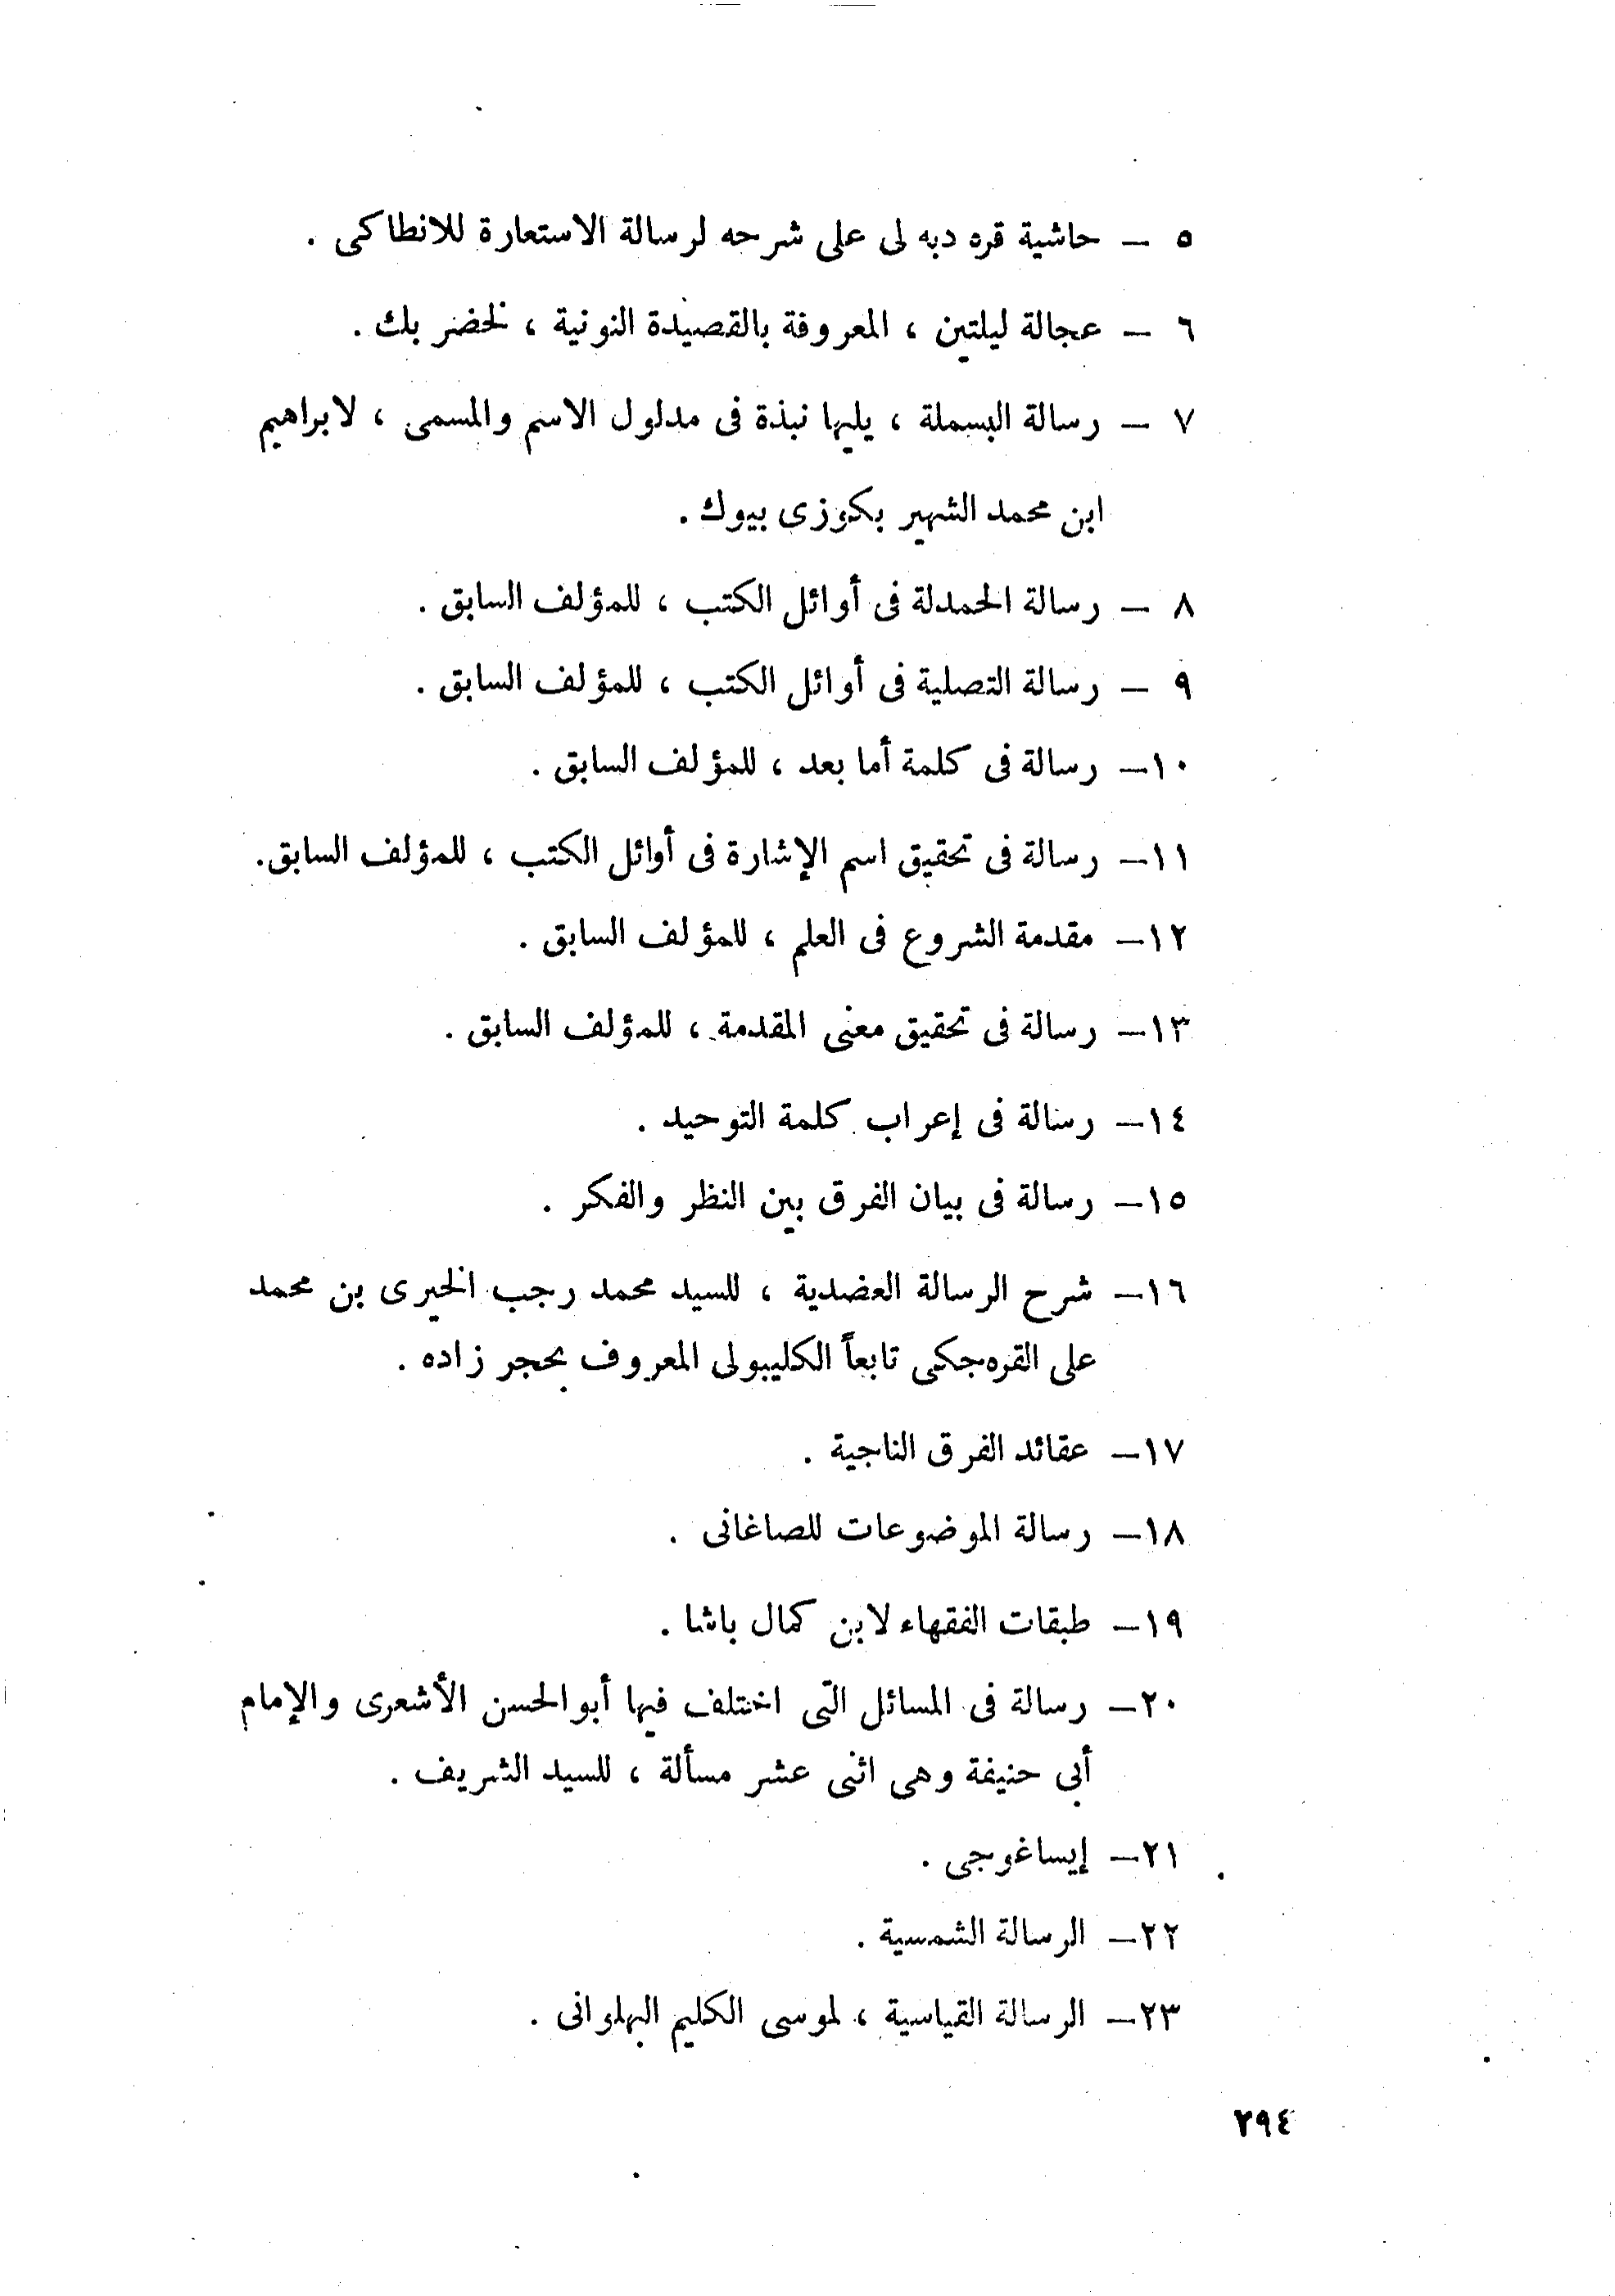 ٥ – حاشية قره دبه لى على شرحه لرسالة الاستعارة للانطاكى .
٦ – عجالة ليلتين ، المعروفة بالقصيدة النونية ، لخضر بك .
٧ – رسالة البسملة ، يليها نبذة فى مدلول الاسم والمسمى ، لابراهيم
ابن محمد الشهير بكوزى بيوك .
٨ – رسالة الحمدلة فى أوائل الكتب ، للمؤلف السابق .
٩ – رسالة التصلية فى أوائل الكتب ، للمؤلف السابق .
١٠– رسالة فى كلمة أما بعد ، للمؤلف السابق .
١١– رسالة فى تحقيق اسم الإشارة فى أوائل الكتب ، للمؤلف السابق.
١٢– مقدمة الشروع فى العلم ، للمؤلف السابق .
١٣– رسالة فى تحقيق معنى المقدمة ، للمؤلف السابق .
١٤– رسالة فى إعراب كلمة التوحيد .
١٥– رسالة فى بيان الفرق بين النظر والفكر .
١٦– شرح الرسالة العضدية ، للسيد محمد رجب الخيرى بن محمد
على القره‌جكى تابعاً الكليبولى المعروف بحجر زاده .
١٧– عقائد الفرق الناجية .
١٨– رسالة الموضوعات للصاغانى .
١٩– طبقات الفقهاء لابن كمال باشا .
٢٠– رسالة فى المسائل التى اختلف فيها أبوالحسن الأشعرى والإمام
أبى حنيفة وهى اثنى عشر مسألة ، للسيد الشريف .
٢١– إيساغوجى .
٢٢– الرسالة الشمسية .
٢٣– الرسالة القياسية ، لموسى الكليم البهلوانى .
٢٩٤